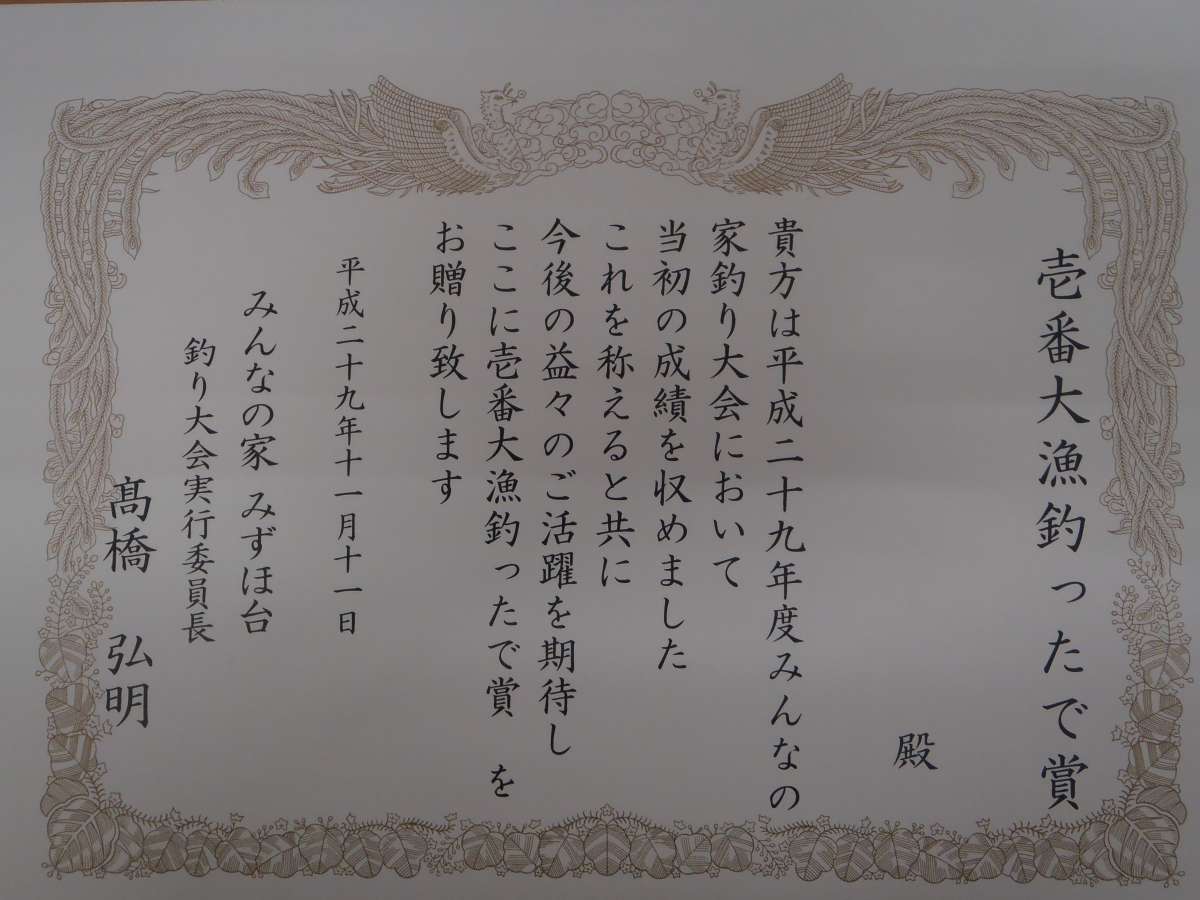 壱番大漁釣ったで賞
殿
貴方は平成二十九年度みんなの
家釣り大会において
当初の成績を収めました
これを称えると共に
今後の益々のご活躍を期待し
ここに壱番大漁釣ったで賞 を
お贈り致します
平成二十九年十一月十一日
みんなの家 みずほ台
釣り大会実行委員長
髙橋 弘明